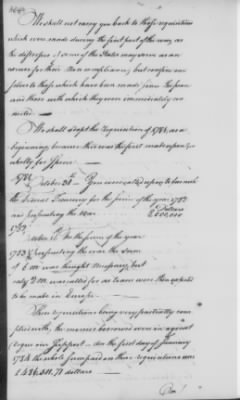 We shall not carry you back to those requisitions
which were made during the first part of the war, as
the distresses of some of the States may serve as an
answer for their Non compliance, but confine our
selves to those which have been made since the peace
and those with which they were immediately con
nected —
We shall adopt the requisition of 1781, as a
beginning because this was the first made upon you
wholly for Specie.
1781
October 30th You were called upon to furnish
the Federal Treasury for the service of the year 1782
and prosecuting the war Dollars 8,000,000
1782
October For the service of the year
1783 & prosecuting the war the Sum
of 6 m. was thought necessary, but
only 2 m. was called for as loans were then expected
to be made in Europe —
These requisitions being very partially com
plied with, the monies borrowed even in a great
degree our Support — On the first day of January
1784 the whole Sum paid on these requisitions was
1,486,511.71 dollars —